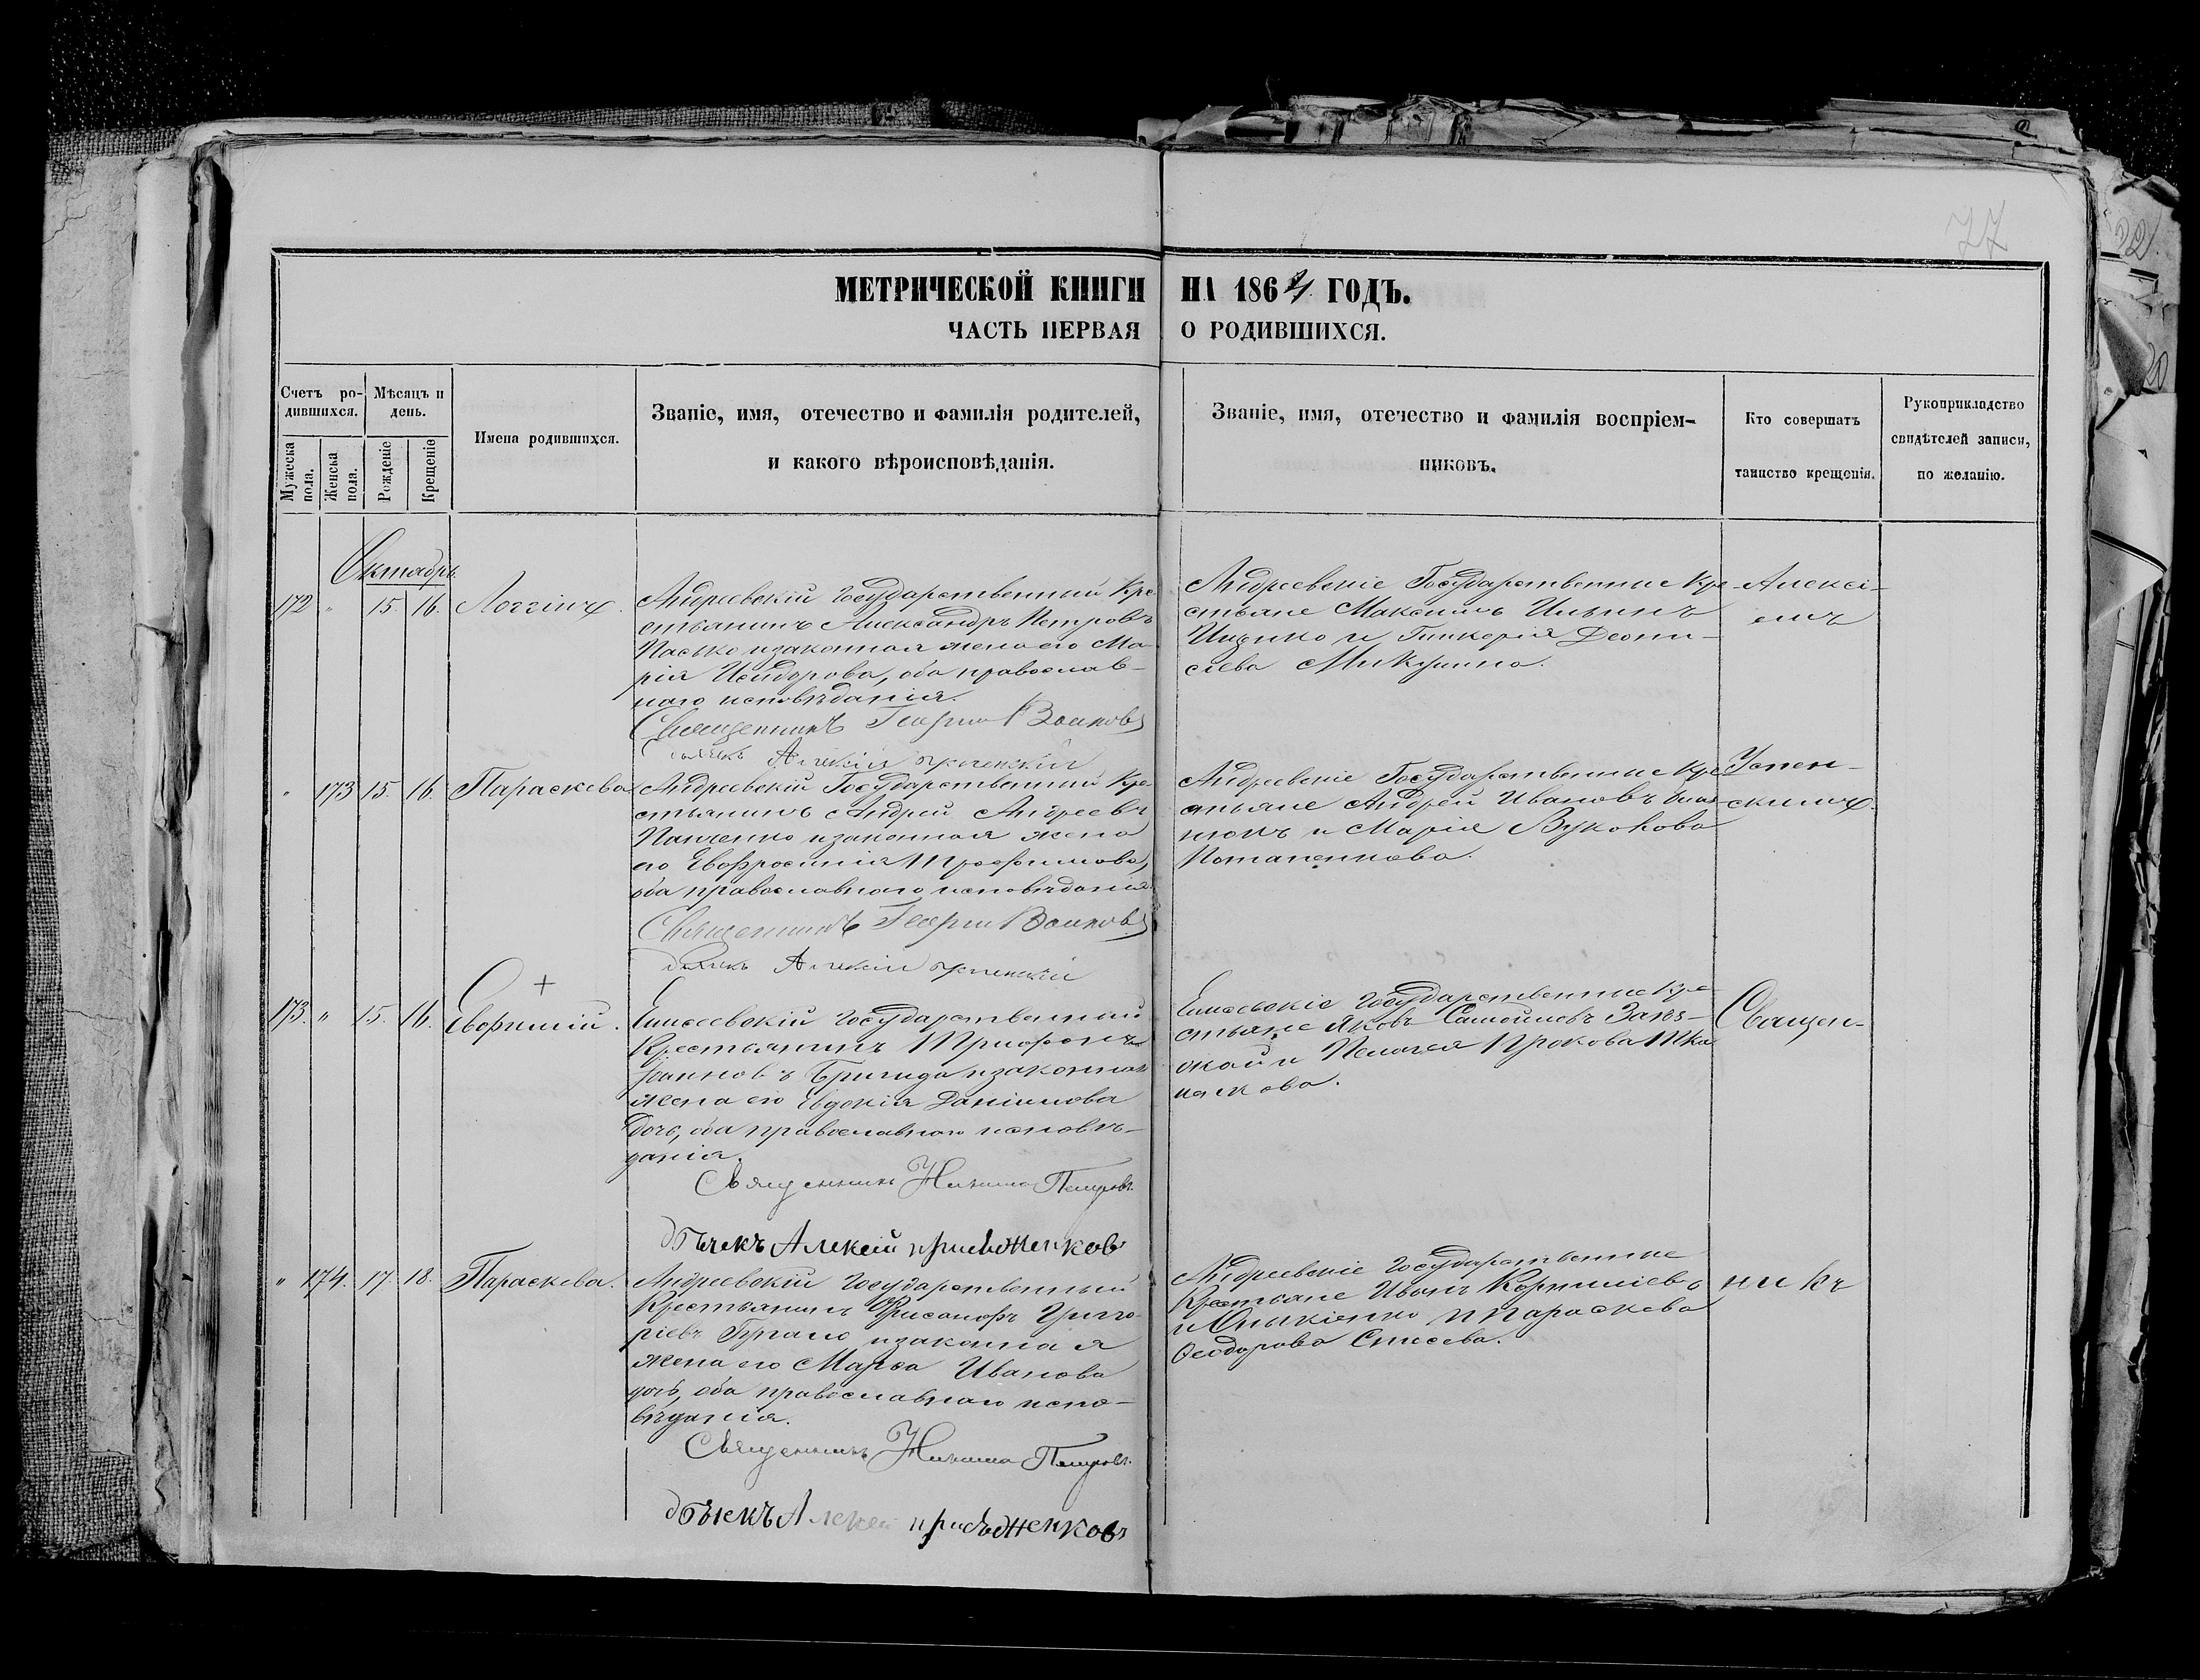 77
МЕТРИЧЕСКОЙ КНИГИ НА 1864 ГОДЪ.
ЧАСТЬ ПЕРВАЯ О РОДИВШИХСЯ.
Счетъ ро-
дившихся.
Мужеска пола.
Женска пола.
Мѣсяцъ и
день.
Рожденіе
Крещеніе
Имена родившихся.
Званіе, имя, отечество и фамилія родителей,
и какого вѣроисповѣданія.
Званіе, имя, отечество и фамилія воспріем-
никовъ.
Кто совершалъ
таинство крещенія.
Рукоприкладство
свидѣтелей записи,
по желанію.
Октябрь
172 " 15. 16. Логгинъ.
Андреевскій государственный Кре-
стьянинъ Александръ Петровъ
Пасько и законная жена его Ма-
рія Исидорова, оба православ-
наго исповѣданія.
Священникъ Георгій Волковъ
Дьячекъ Алексій
Андреевскіе Государственные Кре-
стьяне Максимъ Ильинъ
Ищико и Гликерія Деони-
сіева Микушина.
Алексі-
емъ
" 173 15. 16. Параскева
Андреевскій Государственный Кре-
стьянинъ Андрей Андреевъ
Панченко и законная жена
его Евфросинія Трофимова,
оба православнаго исповѣданія.
Священникъ Георгій Волковъ
Дьячекъ Алексій
Андреевскіе Государственные Кре-
стьяне Андрей Ивановъ
и Марія
Потапенкова.
Успен-
скимъ.
173. " 15. 16. Евфимій.
Елисеевскій государственный
Крестьянинъ Трифонъ
Іоанновъ Бригида и законная
жена его Евдокія Даніилова
дочь, оба православнаго исповѣ-
данія.
Священникъ Никита Петровъ.
дьячекъ Алексій
Елисеевскіе государственные Кре-
стьяне Яковъ Самойловъ
и Пелагея Прокова
Священ-
" 174. 17. 18. Параскева.
Андреевскій государственный
Крестьянинъ Хрисанфъ Григо-
ріевъ и законная
жена его Марфа Иванова
дочь, оба православнаго испо-
вѣданія.
Священникъ Никита Петровъ.
дьячекъ Алексей
Андреевскіе государственные
Крестьяне Иванъ Корниліевъ
и Параскева
Ѳеодорова Елисеева.
никъ